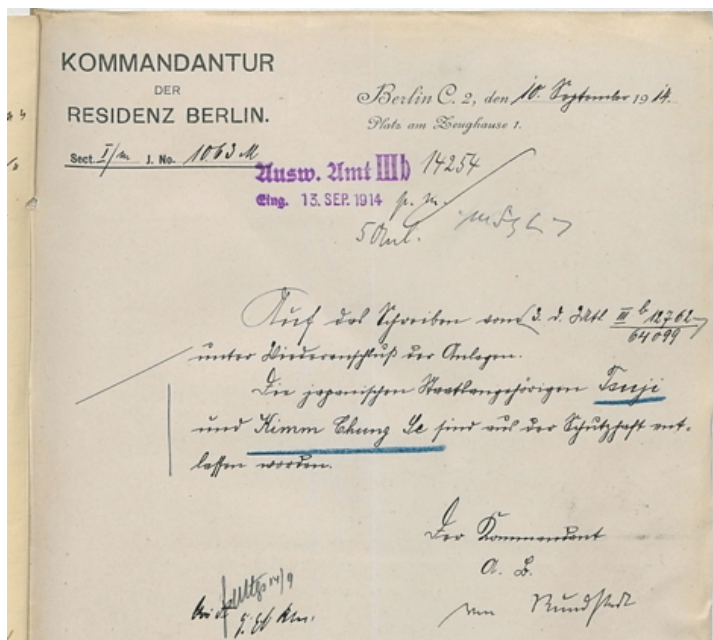 KOMMANDANTUR
DER
RESIDENZ BERLIN.
Berlin C. 2, den 10. September 1914.
Platz am Zeughause 1.
Sect. I/m J. No. 1063 M
Ausw. Amt IIIb 14254
Eing. 13. SEP. 1914 p. m.
5 Anl.
Auf das Schreiben vom 3. d. Mts III b 12762
64099
unter Wiederanschluß der Anlagen.
Die japanischen Staatsangehörigen Tsuji
und Kimm Chung Se sind aus der Schutzhaft ent-
lassen worden.
Der Kommandant
A. B.
von Rundstedt
14/9